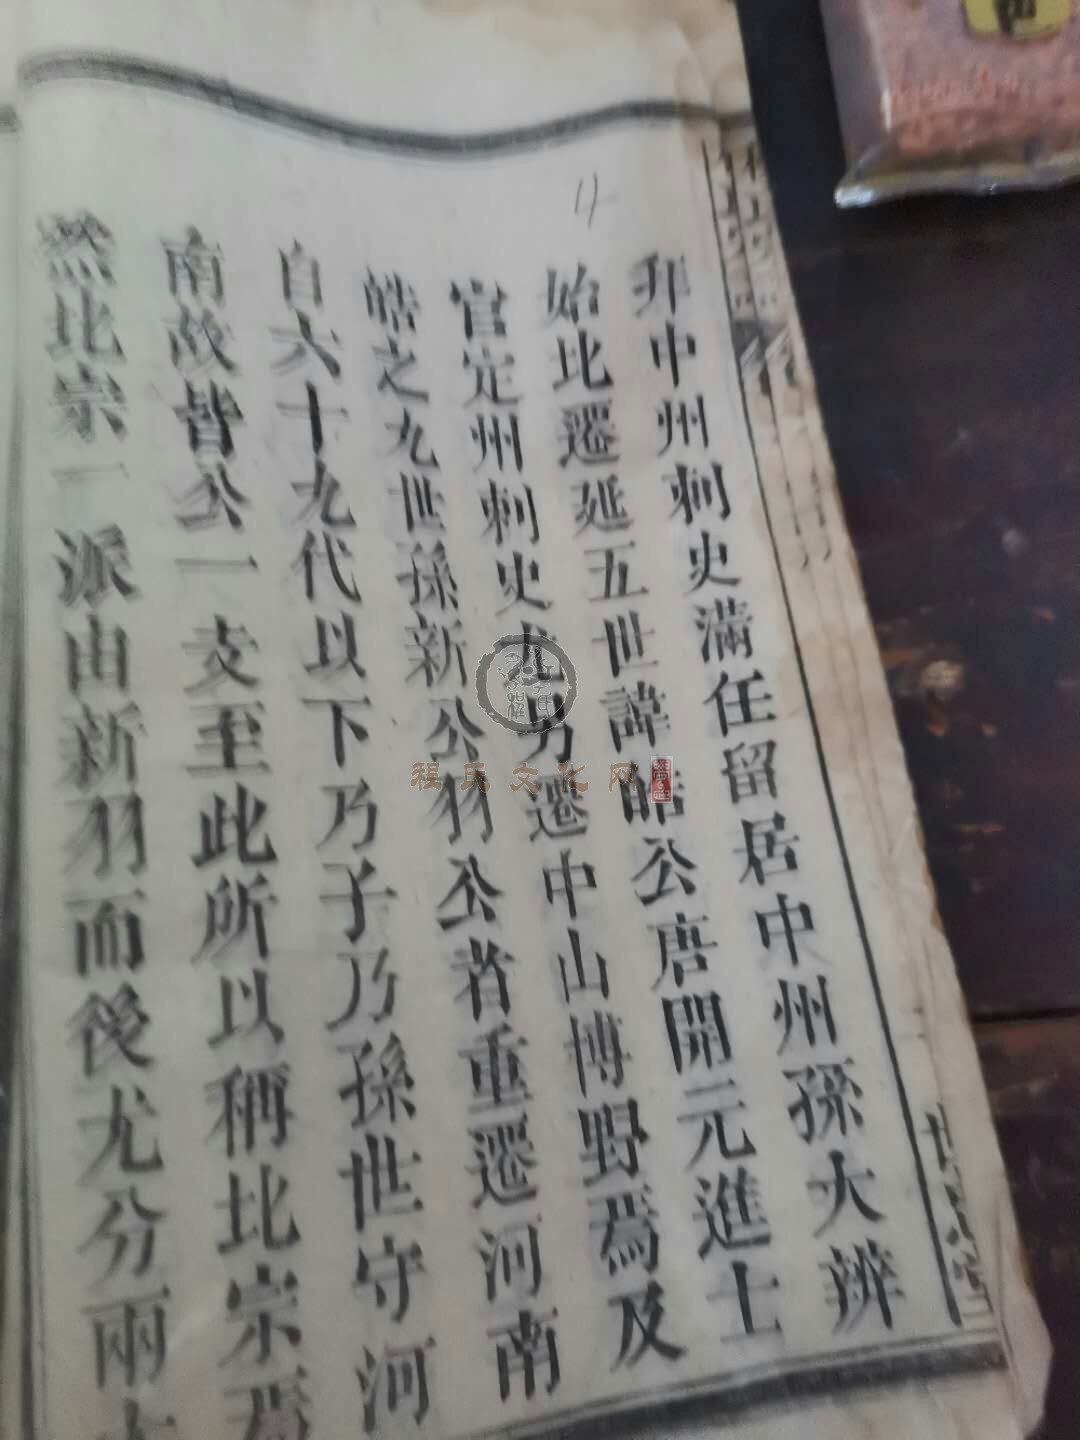 拜中州刺史滿任留居中州孫大辨
始比遷延五世諱皓公唐開元進士
官定州刺史尤男遷中山博野焉及
皓之九世孫新公羽公者重遷河南
自六十九代以下乃子乃孫世守河
南故皆公一支至此所以稱比宗焉
然比宗一派由新羽而後尤分兩
程氏文化网